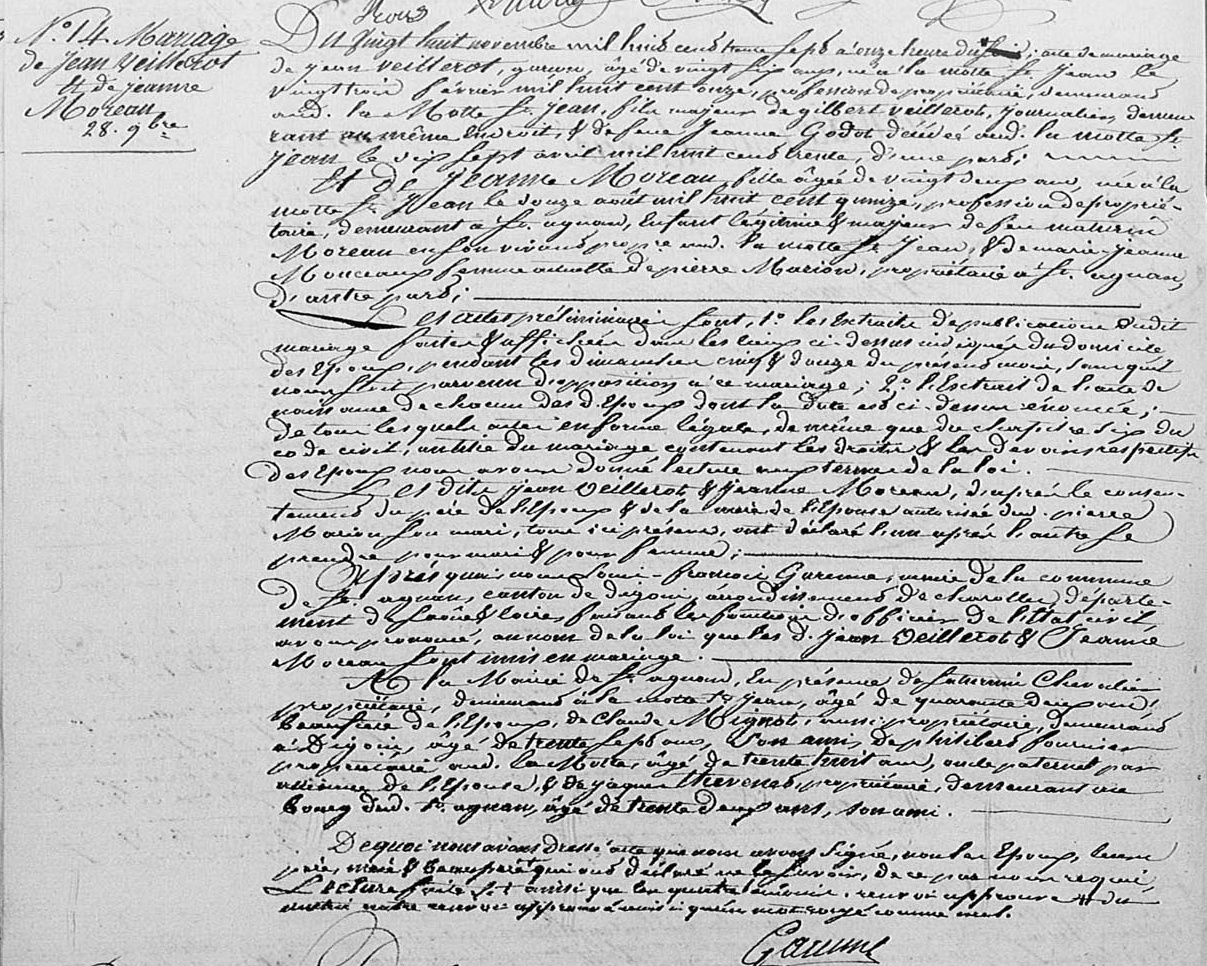 N.° 14. Mariage
de Jean Veillerot
Et de jeanne
Moreau
28. 9bre
Du vingt huit novembre mil huit cent trente sept à onze heure du ; acte de mariage
de jean Veillerot, garçon, âgé de vingt six ans, né à la motte St. Jean le
vingt trois février mil huit cent onze, profession de propriétaire, demeurant
aud. la Motte St. jean, fils majeur de gilbert Veillerot, journalier, demeu
rant au même endroit, & de feue Jeanne Godot décédée aud. la motte St.
Jean le dix sept avril mil huit cent trente, d'une part;
Et de Jeanne Moreau, fille âgée de vingt deux ans, née à la
motte St. Jean le douze août mil huit cent quinze, profession de proprié-
taire, demeurant à St. agnan, Enfant légitime & majeur de feu maturin
Moreau en son vivant propre. aud. la motte St. Jean, & de marie-Jeanne
Monceaux femme actuelle de pierre Marion, propriétaire à St. agnan,
d'autre part;
Les actes préliminaires sont, 1.° les Extraits de publication dudit
mariage faites & affichées dans les lieux ci-dessus indiqués du domicile
des Epoux, pendant les dimanches cinq & douze du présent mois, sans qu'il
nous soit parvenu d'opposition à ce mariage; 2.° l'Extrait de l'acte de
naissance de chacun des d. Epoux dont la date est ci-dessus énoncée;
de tous lesquels actes en forme légale, de même que du chapitre six du
code civil, intitulé du mariage contenant les droits & les devoirs respectifs
des Epoux nous avons donné lecture aux termes de la loi.
Les dits jean Veillerot & Jeanne Moreau, d'après le consen-
tement du père de l'Epoux & de la mère de l'Epouse autorisée dud. pierre
Marion son mari, tous ici présens, ont déclaré l'un après l'autre se
prendre pour mari & pour femme;
Après quoi, nous Louis-françois Garenne, maire de la commune
de St. agnan, canton de digoin, arrondissement de charolles, départe-
ment de Saône & loire, faisant les fonctions d'officier de l'Etat civil,
avons prononcé, au nom de la loi que les d. Jean Veillerot & Jeanne
Moreau sont unis en mariage.
A la Mairie de St. agnan, En présence de Chevalier
propriétaire, demeurant à la motte St. Jean, âgé de quarante deux ans,
beaufrère de l'Epoux, de Claude Mignot, aussi propriétaire, demeurant
à Digoin, âgé de trente sept ans, son ami, de philibert fournier
propriétaire aud. la Motte, âgé de trente huit ans, oncle paternel par
alliance de l'Epouse, & de jaques thevenet, propriétaire, demeurant au
bourg dud. St. agnan, âgé de trente deux ans, son ami.
De quoi nous avons dressé acte que nous avons signé, non les Epoux, leurs
père, mère & beaupère qui ont déclaré ne le savoir, de ce par nous requis,
Lecture faite, ainsi que les quatre témoins. renvoi approuvé
renvoi approuvé ainsi qu'un mot rayé comme nul.
Garenne